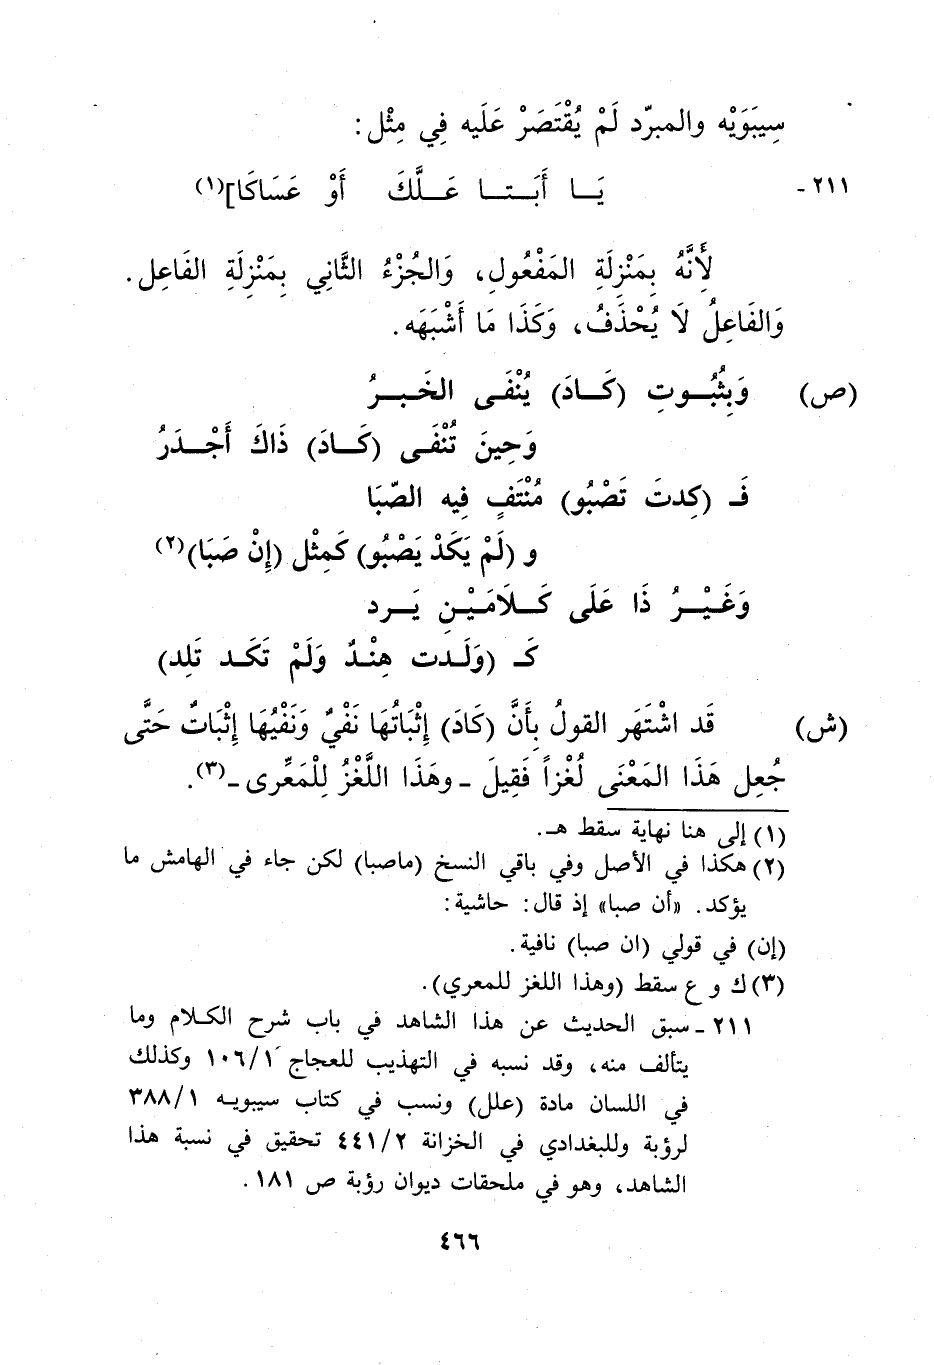 سِيبَوَيْه والمبرّد لَمْ يُقْتَصَرْ عَلَيه فِي مِثْل:
٢١١ - يَــا أَبَــتــا عَــلَّكَ أَوْ عَسَاكَا](١)
لِأَنَّهُ بِمَنْزِلَةِ المَفْعُولِ، وَالجُزْءُ الثَّانِي بِمَنْزِلَةِ الفَاعِل.
وَالفَاعِلُ لَا يُحْذَفُ، وَكَذَا مَا أَشْبَهَه.
(ص) وَبِثُبُــوتِ (كَــادَ) يُنْفَــى الخَبــرُ
وَحِينَ تُنْفَــى (كَــادَ) ذَاكَ أَجْــدَرُ
فَـ (كِدتَ تَصْبُو) مُنْتَفٍ فِيه الصِّبَا
و (لَمْ يَكَدْ يَصْبُو) كَمِثْل (إِنْ صَبَا)(٢)
وَغَيْــرُ ذَا عَلَى كَــلَامَيْــنِ يَــرد
كَـ (وَلَــدت هِنْــدٌ وَلَمْ تَكَــد تَلِد)
(ش) قَد اشْتَهَر القولُ بِأَنَّ (كَادَ) إِثْبَاتُهَا نَفْيٌ وَنَفْيُهَا إِثْبَاتٌ حَتَّى
جُعِل هَذَا المَعْنَى لُغْزاً فَقِيلَ - وهَذَا اللَّغْزُ لِلْمَعِّرى -(٣).
(١) إلى هنا نهاية سقط هـ.
(٢) هكذا في الأصل وفي باقي النسخ (ماصبا) لكن جاء في الهامش ما
يؤكد. «أن صبا» إذ قال: حاشية:
(إن) في قولي (ان صبا) نافية.
(٣) ك و ع سقط (وهذا اللغز للمعري).
٢١١ - سبق الحديث عن هذا الشاهد في باب شرح الكلام وما
يتألف منه، وقد نسبه في التهذيب للعجاج ١٠٦/١ وكذلك
في اللسان مادة (علل) ونسب في كتاب سيبويه ٣٨٨/١
لرؤبة وللبغدادي في الخزانة ٤٤١/٢ تحقيق في نسبة هذا
الشاهد، وهو في ملحقات ديوان رؤبة ص ١٨١.
٤٦٦